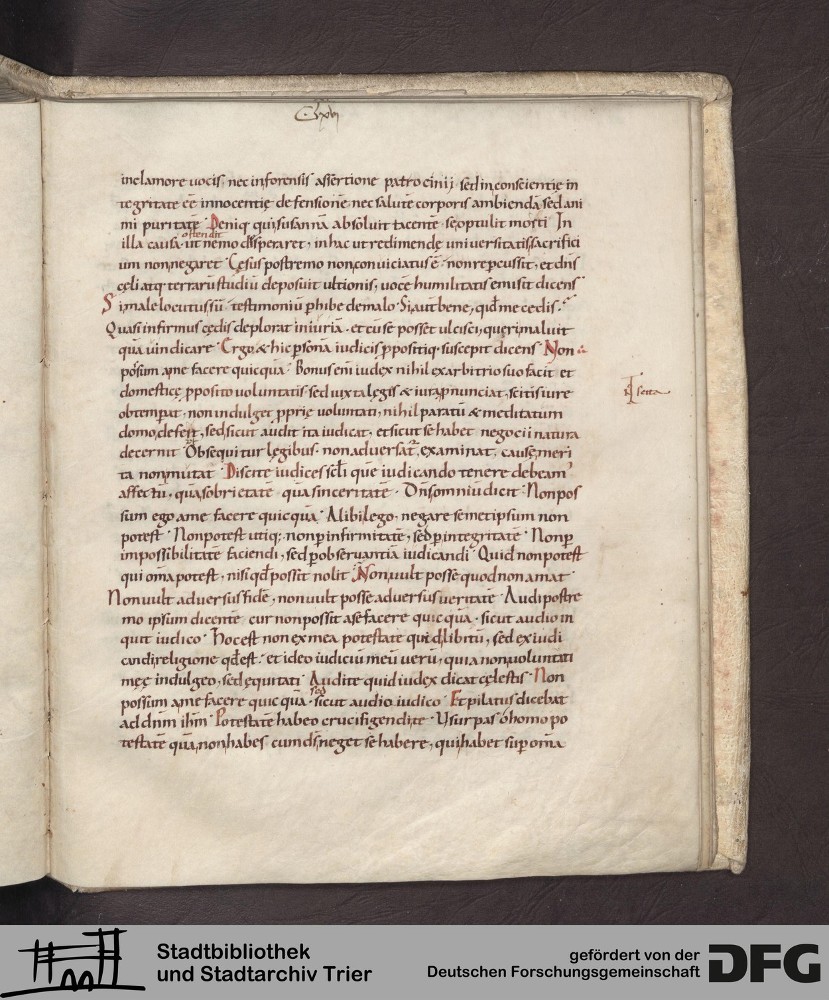 inclamore uocis, nec inforensis assertione patrocinij sed inconscientię in
tegritate eē innocentię defensionē nec salutē corporis ambiendā sed ani
mi puritatē Deniq qui susannā absoluit tacente seoptulit morti In
ostendit
illa causa ut nemo desperaret, in hac ut redimendę uniuersitatis sacrifici
um non negaret Cęsus postremo non conuiciatus ē non repercussit, et dn̄s
cęli atq terrarū studiū deposuit ultionis, uocē humilitatis emisit dicens
Si male locutus sū testimoniū phibe de malo Si aut bene, quid me cedis
Quasi infirmus cędis deplorat iniuriā et cū se posset ulcisci, queri maluit
quā uindicare Ergo & hic psonā iudicis ppositiq suscepit dicens Non
possum a me facere quicquā Bonus eni iudex nihil ex arbitrio suo facit et
domesticę pposito uoluntatis sed iuxta legis & iura pnunciat, scitis iure
obtempat, non indulget pprię uoluntati, nihil paratū & meditatum
domo defest, sed sicut audit ita iudicat, et sicut se habet negocii natura
decernit Obsequitur legibus non aduersat examinat, causę meri
ta non mutat Discite iudices scłi que iudicando tenere debeam
affectū, quā sobrietatē quā sinceritatē Dn̄s omniū dicit Non pos
sum ego a me facere quicquā Alibi lego negare semetipsum non
potest Non potest utiq; non p infirmitatē, sed p integritatē Non p
impossibilitatē faciendi, sed p obseruantiā iudicandi Quid non potest
qui oma potest, nisi qd possit nolit Non uult posse quod non amat
Non uult aduersus fidē, non uult posse aduersus ueritatē Audi postre
mo ipsum dicentē cur non possit a se facere quicquā sicut audio in
quit iudico Hoc est non ex mea potestate quid libitū, sed ex iudi
candi religione qd est et ideo iudiciū meū uerū, quia non uoluntati
męę indulgeo, sed equitati Audite quid iudex dicat cęlestis Non
sed
possum a me facere quicquā sicut audio iudico Et pilatus dicebat
ad dnm ihm Potestatē habeo crucifigendi te Usurpas o homo po
testatē quā non habes cum dn̄s neget se habere, qui habet sup oma
Stadtbibliothek
und Stadtarchiv Trier
gefördert von der
Deutschen Forschungsgemeinschaft
DFG